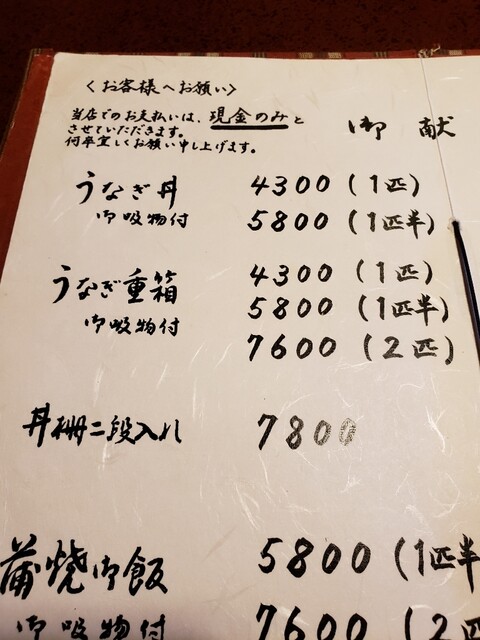 〈お客様へお願い〉
当店でのお支払いは、現金のみと
させていただきます。
何卒宜しくお願い申し上げます。
御献
うなぎ丼 4300(1匹)
御吸物付 5800(1匹半)
うなぎ重箱 4300(1匹)
5800(1匹半)
御吸物付 7600(2匹)
丼柵二段入れ 7800
蒲焼御飯 5800(1匹半
御吸物付 7600(2匹